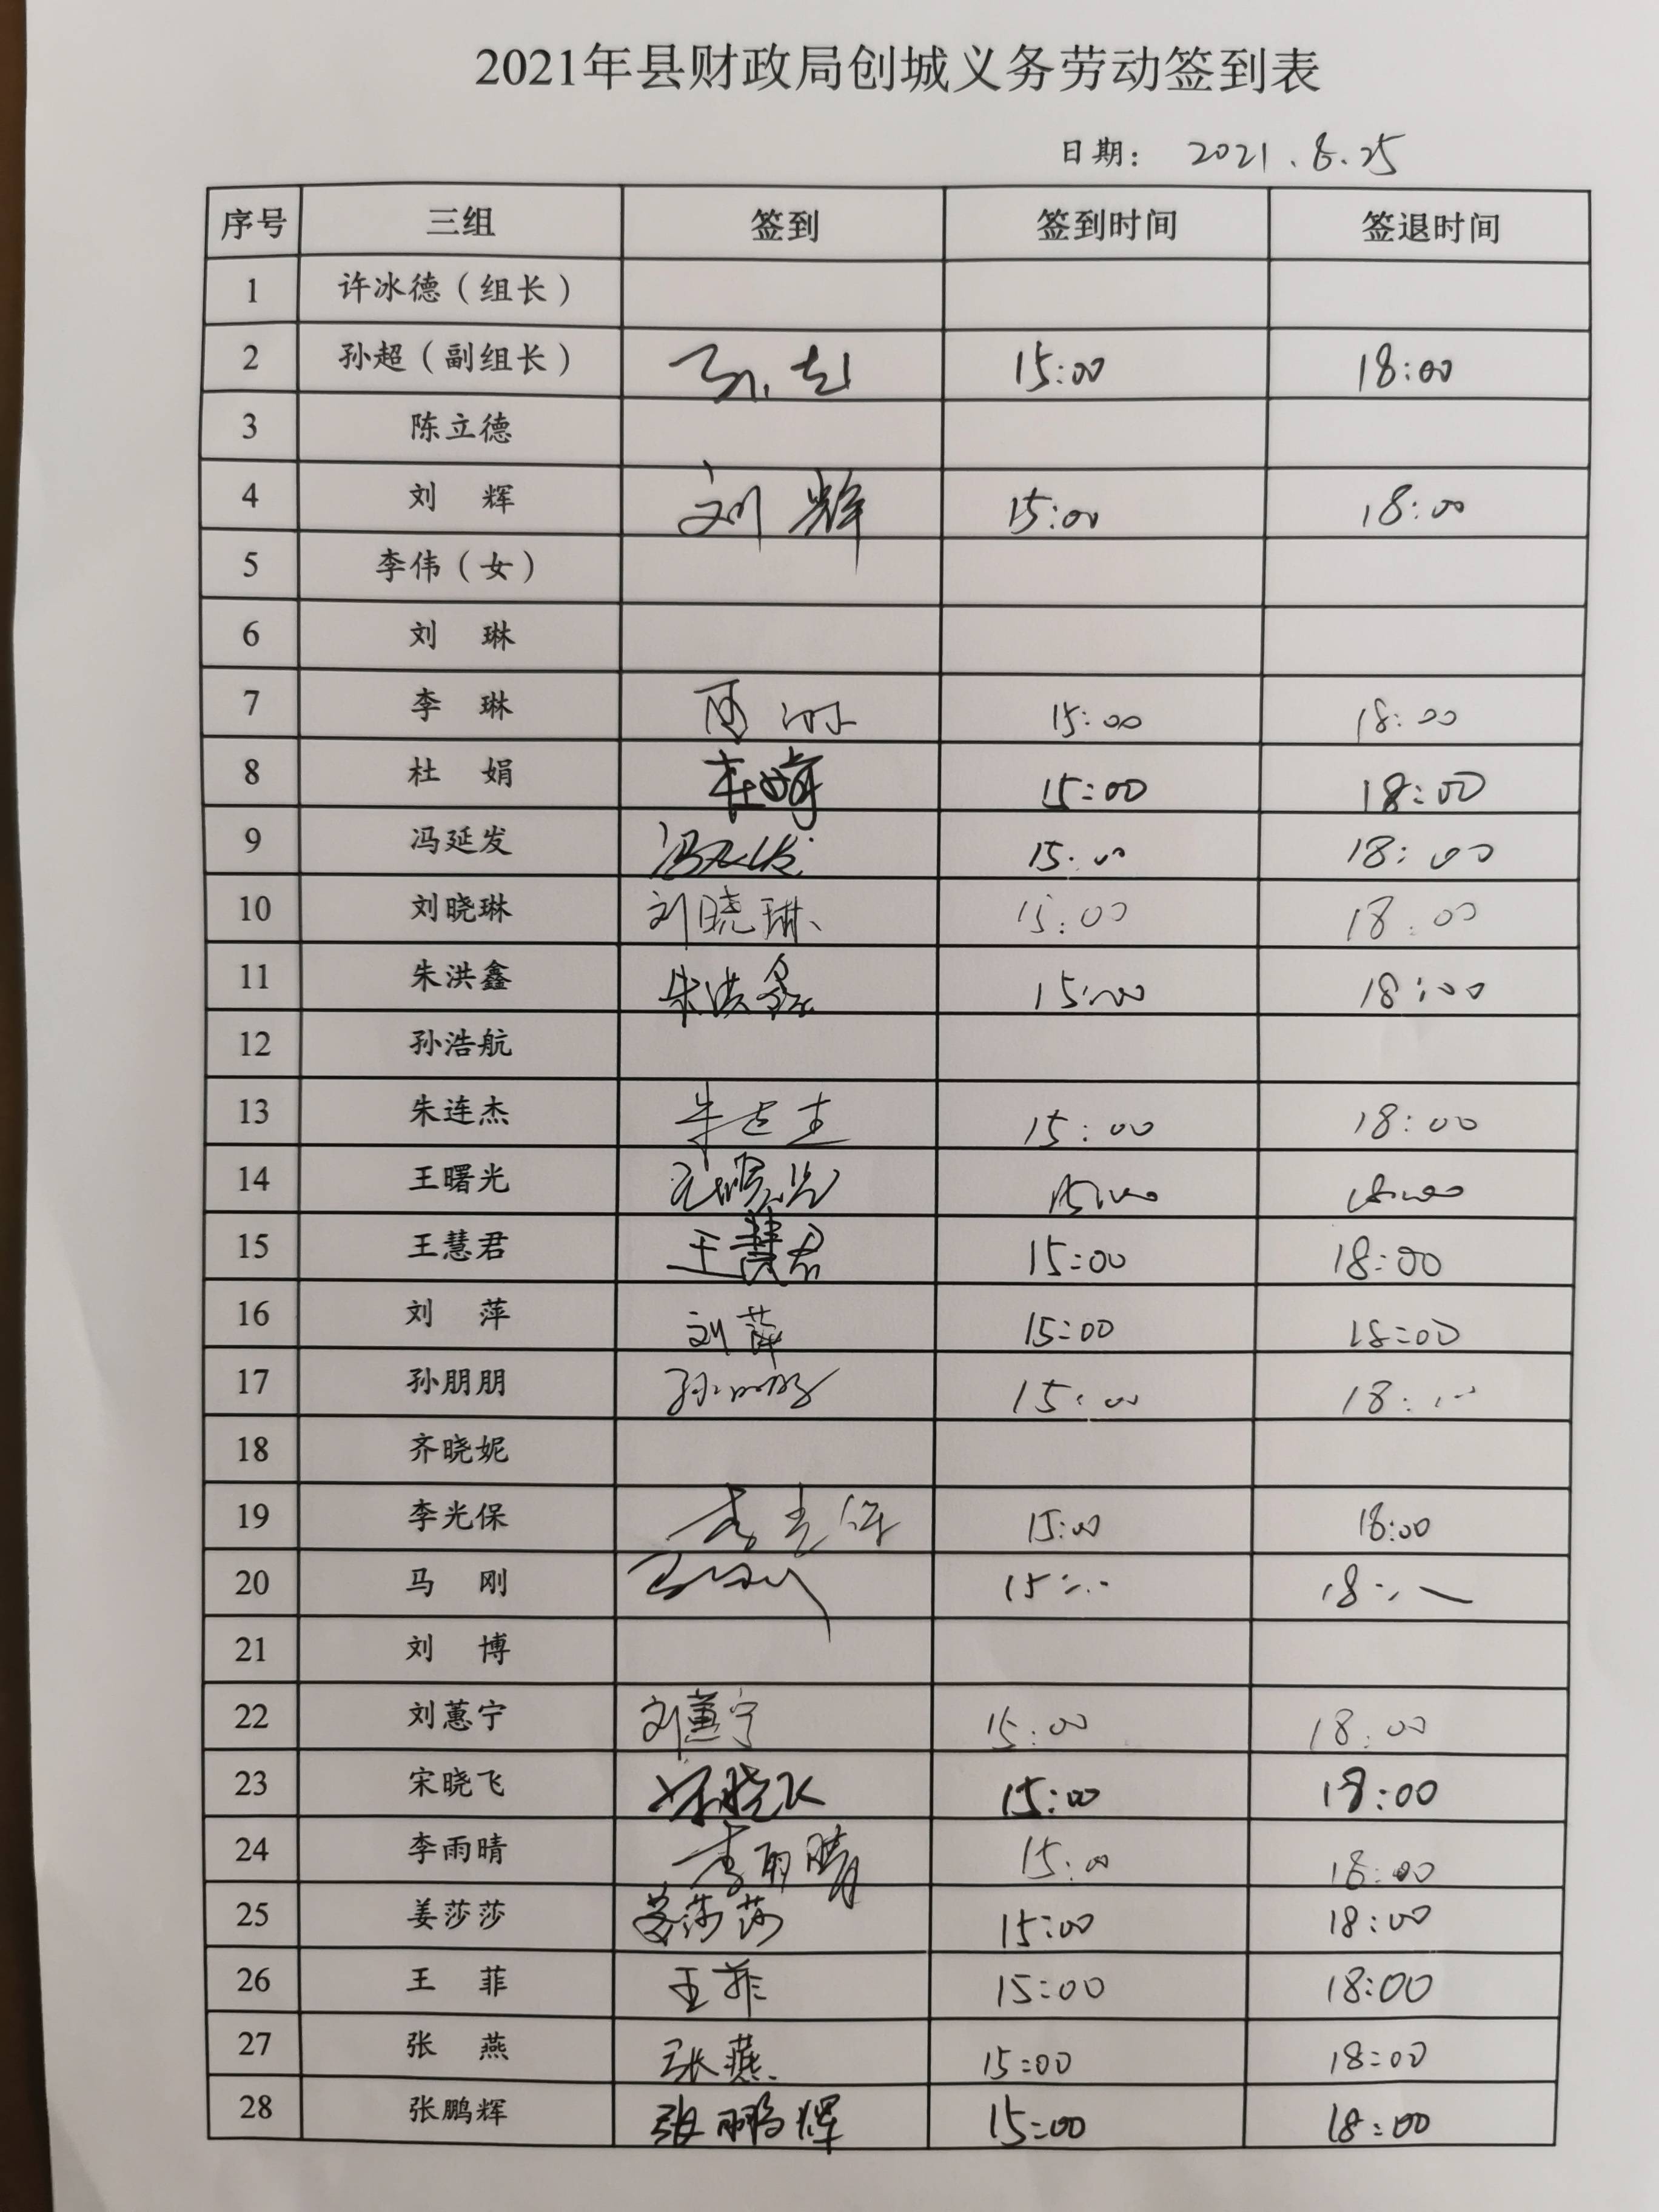 2021年县财政局创城义务劳动签到表
日期： 2021.8.25
序号 三组 签到 签到时间 签退时间
1 许冰德（组长）
2 孙超（副组长） 孙超 15:00 18:00
3 陈立德
4 刘 辉 刘辉 15:00 18:00
5 李伟（女）
6 刘 琳
7 李 琳 15:00 18:00
8 杜 娟 杜娟 15:00 18:00
9 冯延发 冯延发 15:00 18:00
10 刘晓琳 刘晓琳 15:00 18:00
11 朱洪鑫 朱洪鑫 15:00 18:00
12 孙浩航
13 朱连杰 朱连杰 15:00 18:00
14 王曙光 王曙光 15:00 18:00
15 王慧君 王慧君 15:00 18:00
16 刘 萍 刘萍 15:00 18:00
17 孙朋朋 孙朋朋 15:00 18:00
18 齐晓妮
19 李光保 李光保 15:00 18:00
20 马 刚 马刚 15:00 18:00
21 刘 博
22 刘蕙宁 刘蕙宁 15:00 18:00
23 宋晓飞 宋晓飞 15:00 18:00
24 李雨晴 李雨晴 15:00 18:00
25 姜莎莎 姜莎莎 15:00 18:00
26 王 菲 王菲 15:00 18:00
27 张 燕 张燕 15:00 18:00
28 张鹏辉 张鹏辉 15:00 18:00